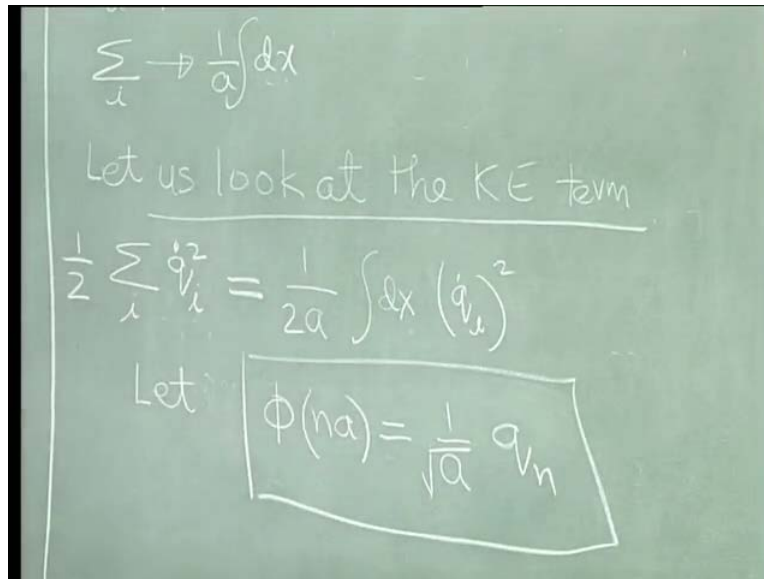 ∑_i → 1/a ∫dx
Let us look at the KE term
1/2 ∑_i q̇_i² = 1/2a ∫dx (q̇_i)²
Let ϕ(na) = 1/√a q_n